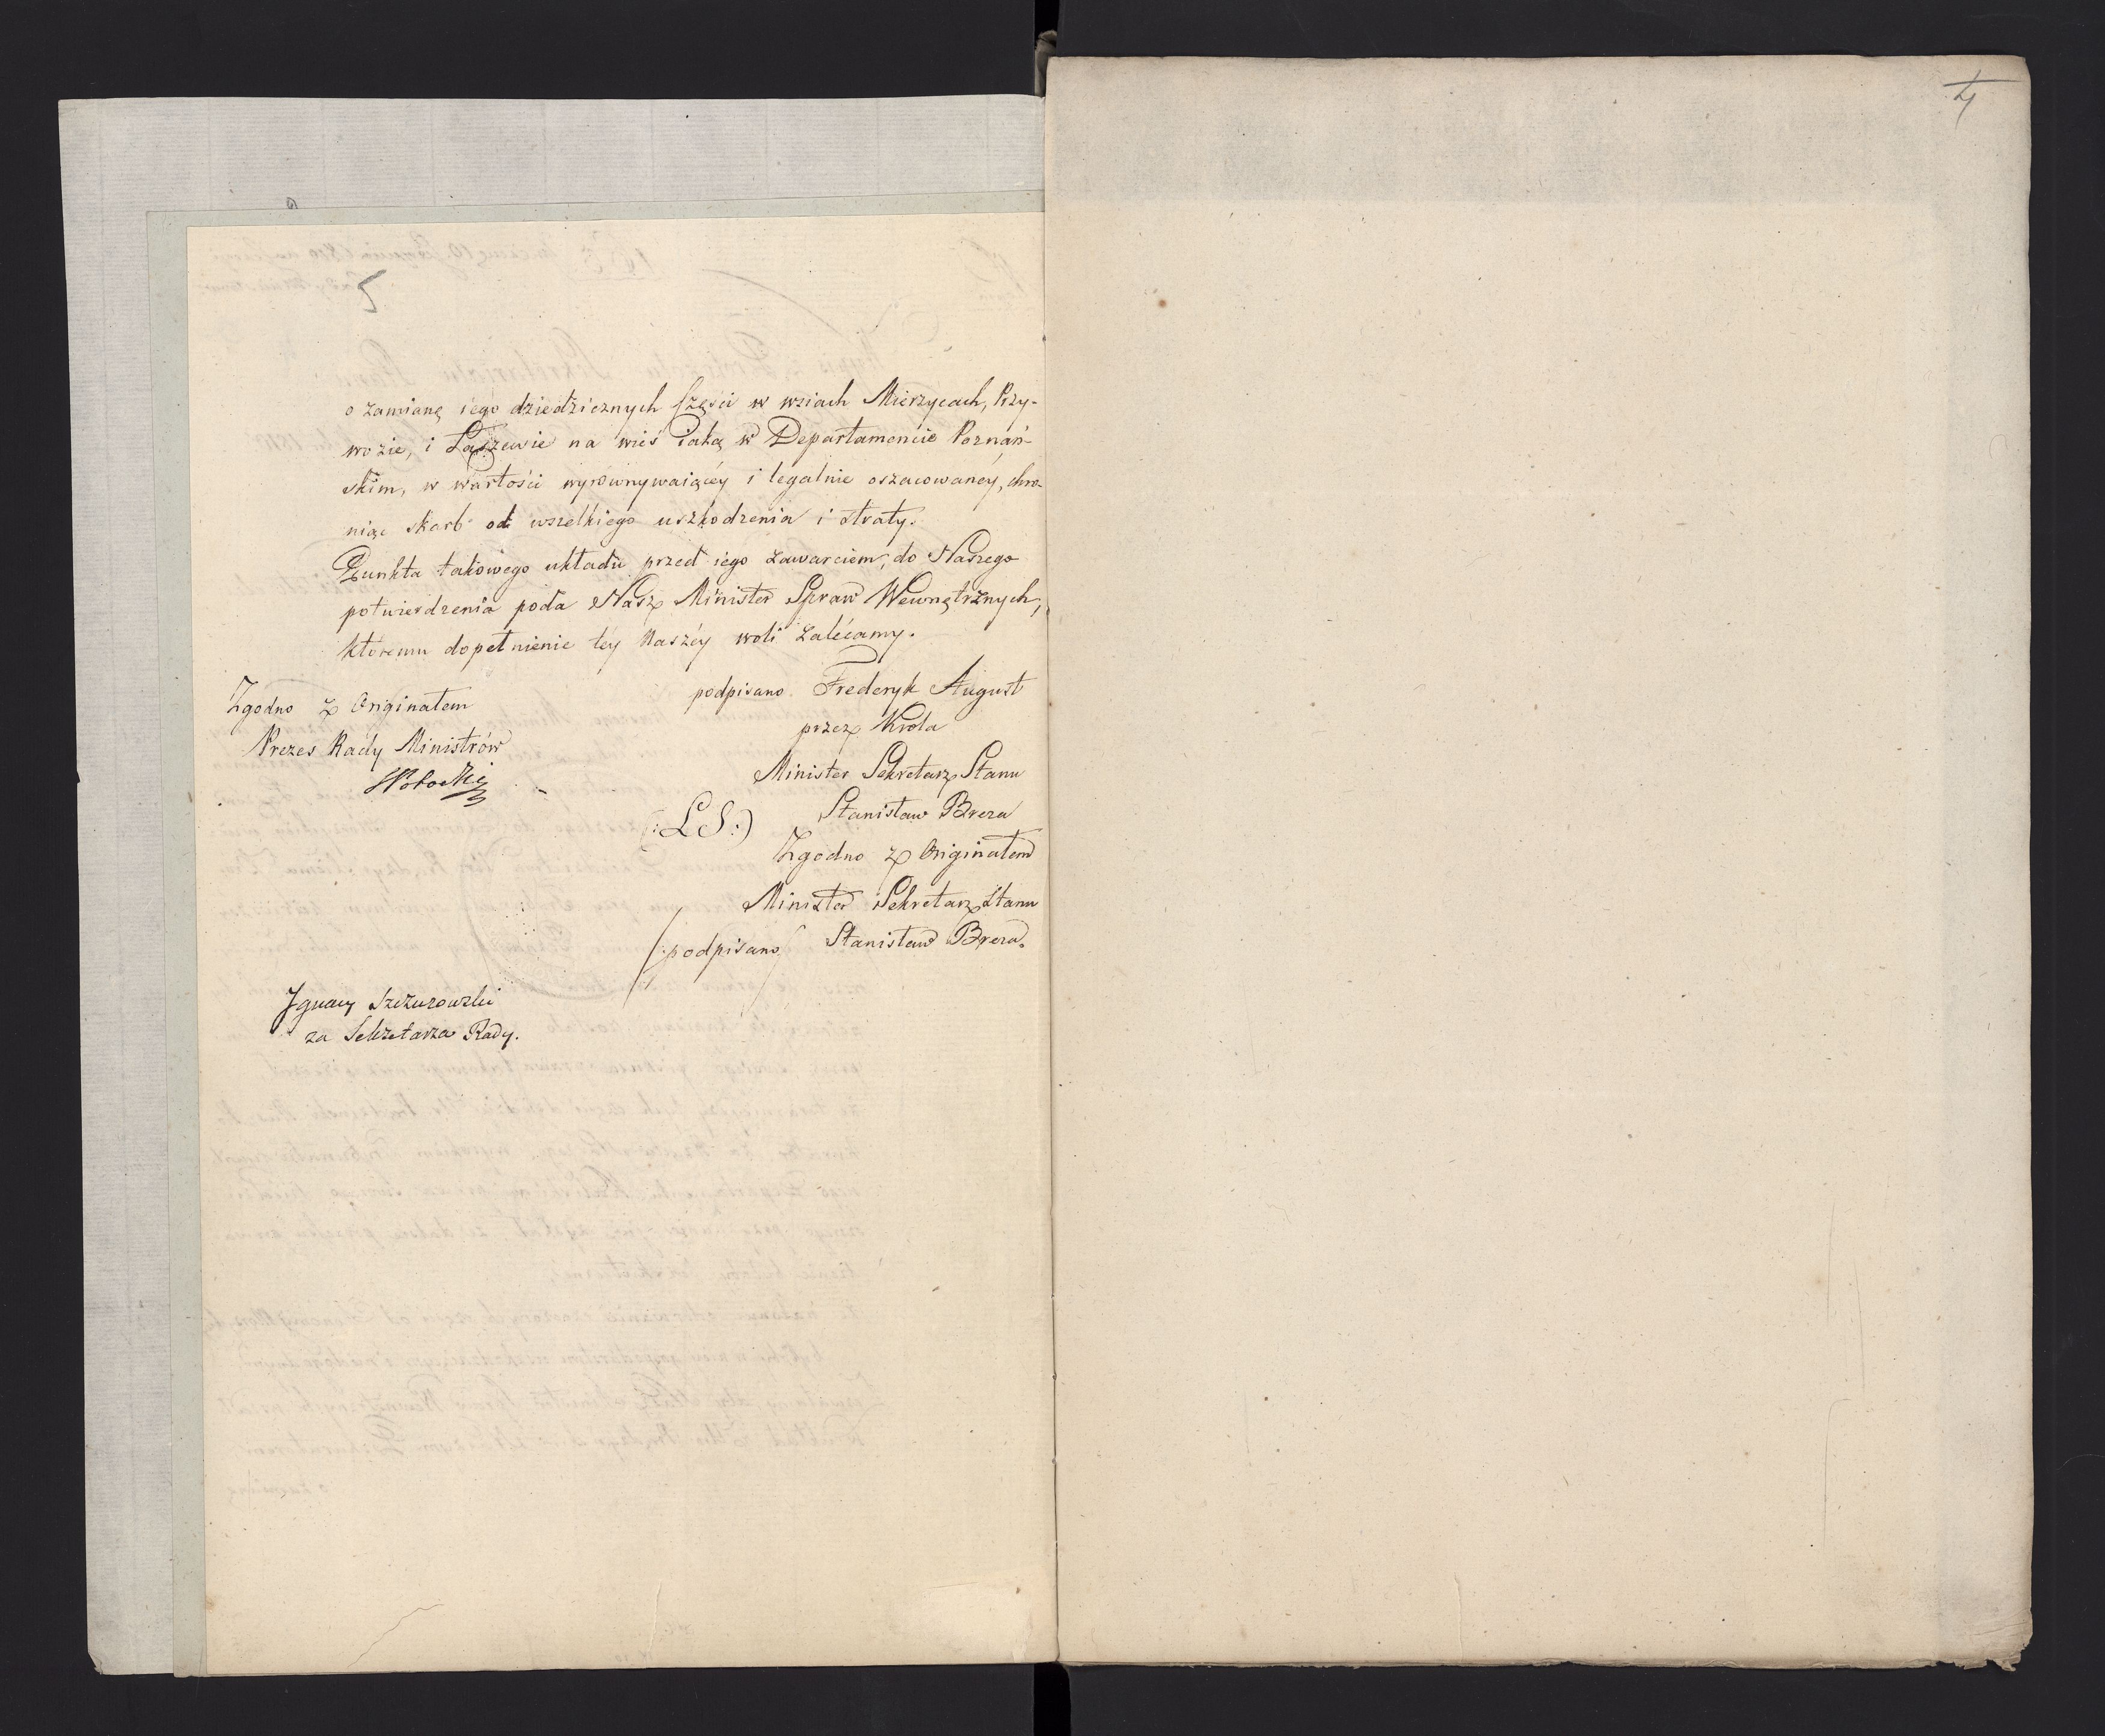 4
5
o zamianę iego dziedzicznych części w wsiach Mierzycach, Przy-
wozie, i Łaszewie na wieś iaką w Departamencie Poznań-
skim, w wartości wyrównywaiącéy i legalnie oszacowanéy, chro-
niąc skarb od wszelkiego uszkodzenia i straty.
Punkta takowego układu przed iego zawarciem, do Naszego
potwierdzenia poda Nasz Minister Spraw Wewnętrznych,
któremu dopełnienie téy Naszéy woli zalécamy.
podpisano Frederyk August
przez Króla
Minister Sekretarz Stanu
Stanisław Breza
(:LS:)
Zgodno z Originałem
Minister Sekretarz Stanu
/:podpisano/ Stanisław Breza.
Zgodno z Originałem
Prezes Rady Ministrów
SPotocki
Ignacy Szczurowski
za Sekretarza Rady.